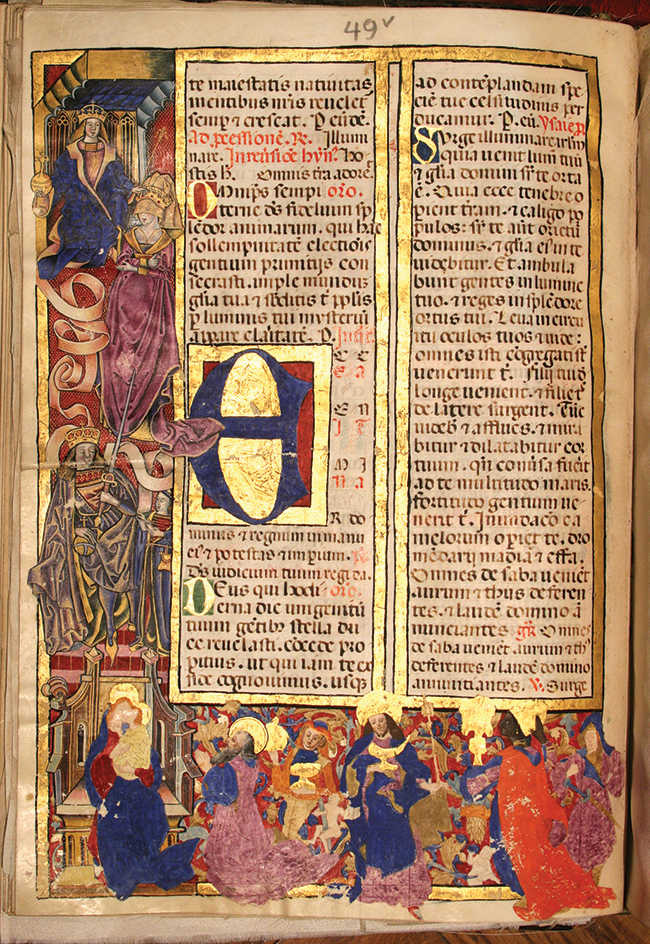 49v
te maiestatis nativitas
mentibus nr̄is revelet
semꝑ & crescat. P eūdē.
Ad ꝓcessionē. R. Illumi
nare.
stis h. Omnis tr̄a adoret
Omnip̄s sempi oro.
terne ds̄ fidelium spl
ēdor animarum. qui hāc
sollempnitatē electiōis
gentium primitijs con
secrasti. imple mundū
gl̄ia tua & sb̄ditis t' pp̄lis
ꝑ luminis tui mysteriū
appare claritate. P.
E
C C
E A
E N
I T
M I
N A
R do
minus & regnum in manu
ei9 & potestas & impium.
Ds̄ iudicium tuum regi da.
Deus qui hodi oro
erna die unigenitū
tuum gentib9 stella du
ce revelasti. cōcede pro
pitius. ut qui iam te ex
fide cognovimus. usq
ad contēplandam spe
ciē tue celsitudinis per
ducamur. P. eū. Ysaie p.
Surge illuminare irlm̄
quia venit lum̄ tuū
& gl̄ia domini sr̄ te orta
ē. Quia ecce tenebre o
pient tr̄am. & caligo po
pulos: sr̄ te aūt orietur
dominus. & gl̄ia ei9 in te
videbitur. Et ambula
bunt gentes in lumine
tuo. & reges in splēdore
ortus tui. Leva in circu
itu oculos tuos & vide:
omnes isti cōgregati sūt
venerunt t'. filii tui de
longe venient. & filie t'
de latere surgent. Tūc
videb & afflues. & mira
bitur & dilatabitur cor
tuum. qn̄ conv̄sa fuerit
ad te multitudo maris.
fortitudo gentium ve
nerit t'. Inundacō ca
melorum opiet te. dro
mēdarij madiā & effa.
Omnes de saba venient
aurum & thus deferen
tes. & laudē domino ā
nunciantes. gr̄. Omnes
de saba venient aurum & th9
deferentes & laudē domino
annuntiantes. V. Surge